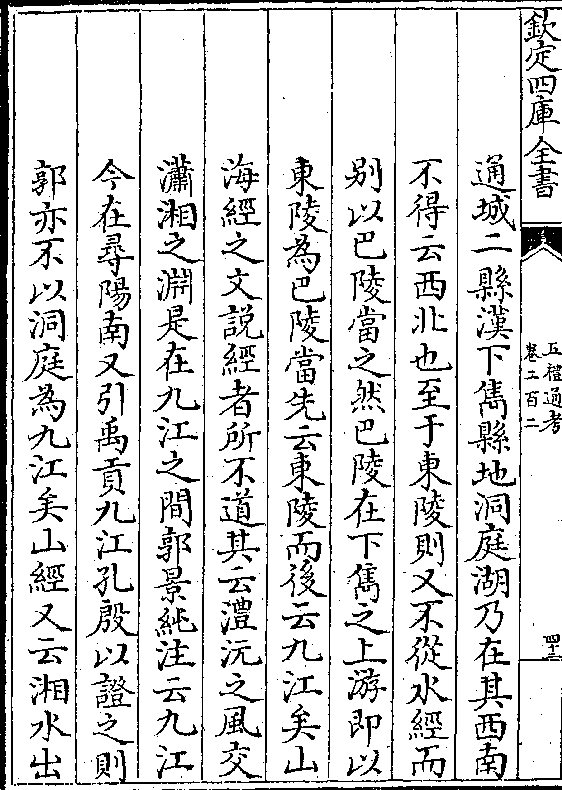 欽定四庫全書
五禮通考
卷二百二
四十三
通城二縣漢下雋縣地洞庭湖乃在其西南
不得云西北也至于東陵則又不從水經而
别以巴陵當之然巴陵在下雋之上游即以
東陵為巴陵當先云東陵而後云九江矣山
海經之文説經者所不道其云澧沅之風交
瀟湘之淵是在九江之間郭景純注云九江
今在尋陽南又引禹貢九江孔殷以證之則
郭亦不以洞庭為九江矣山經又云湘水出